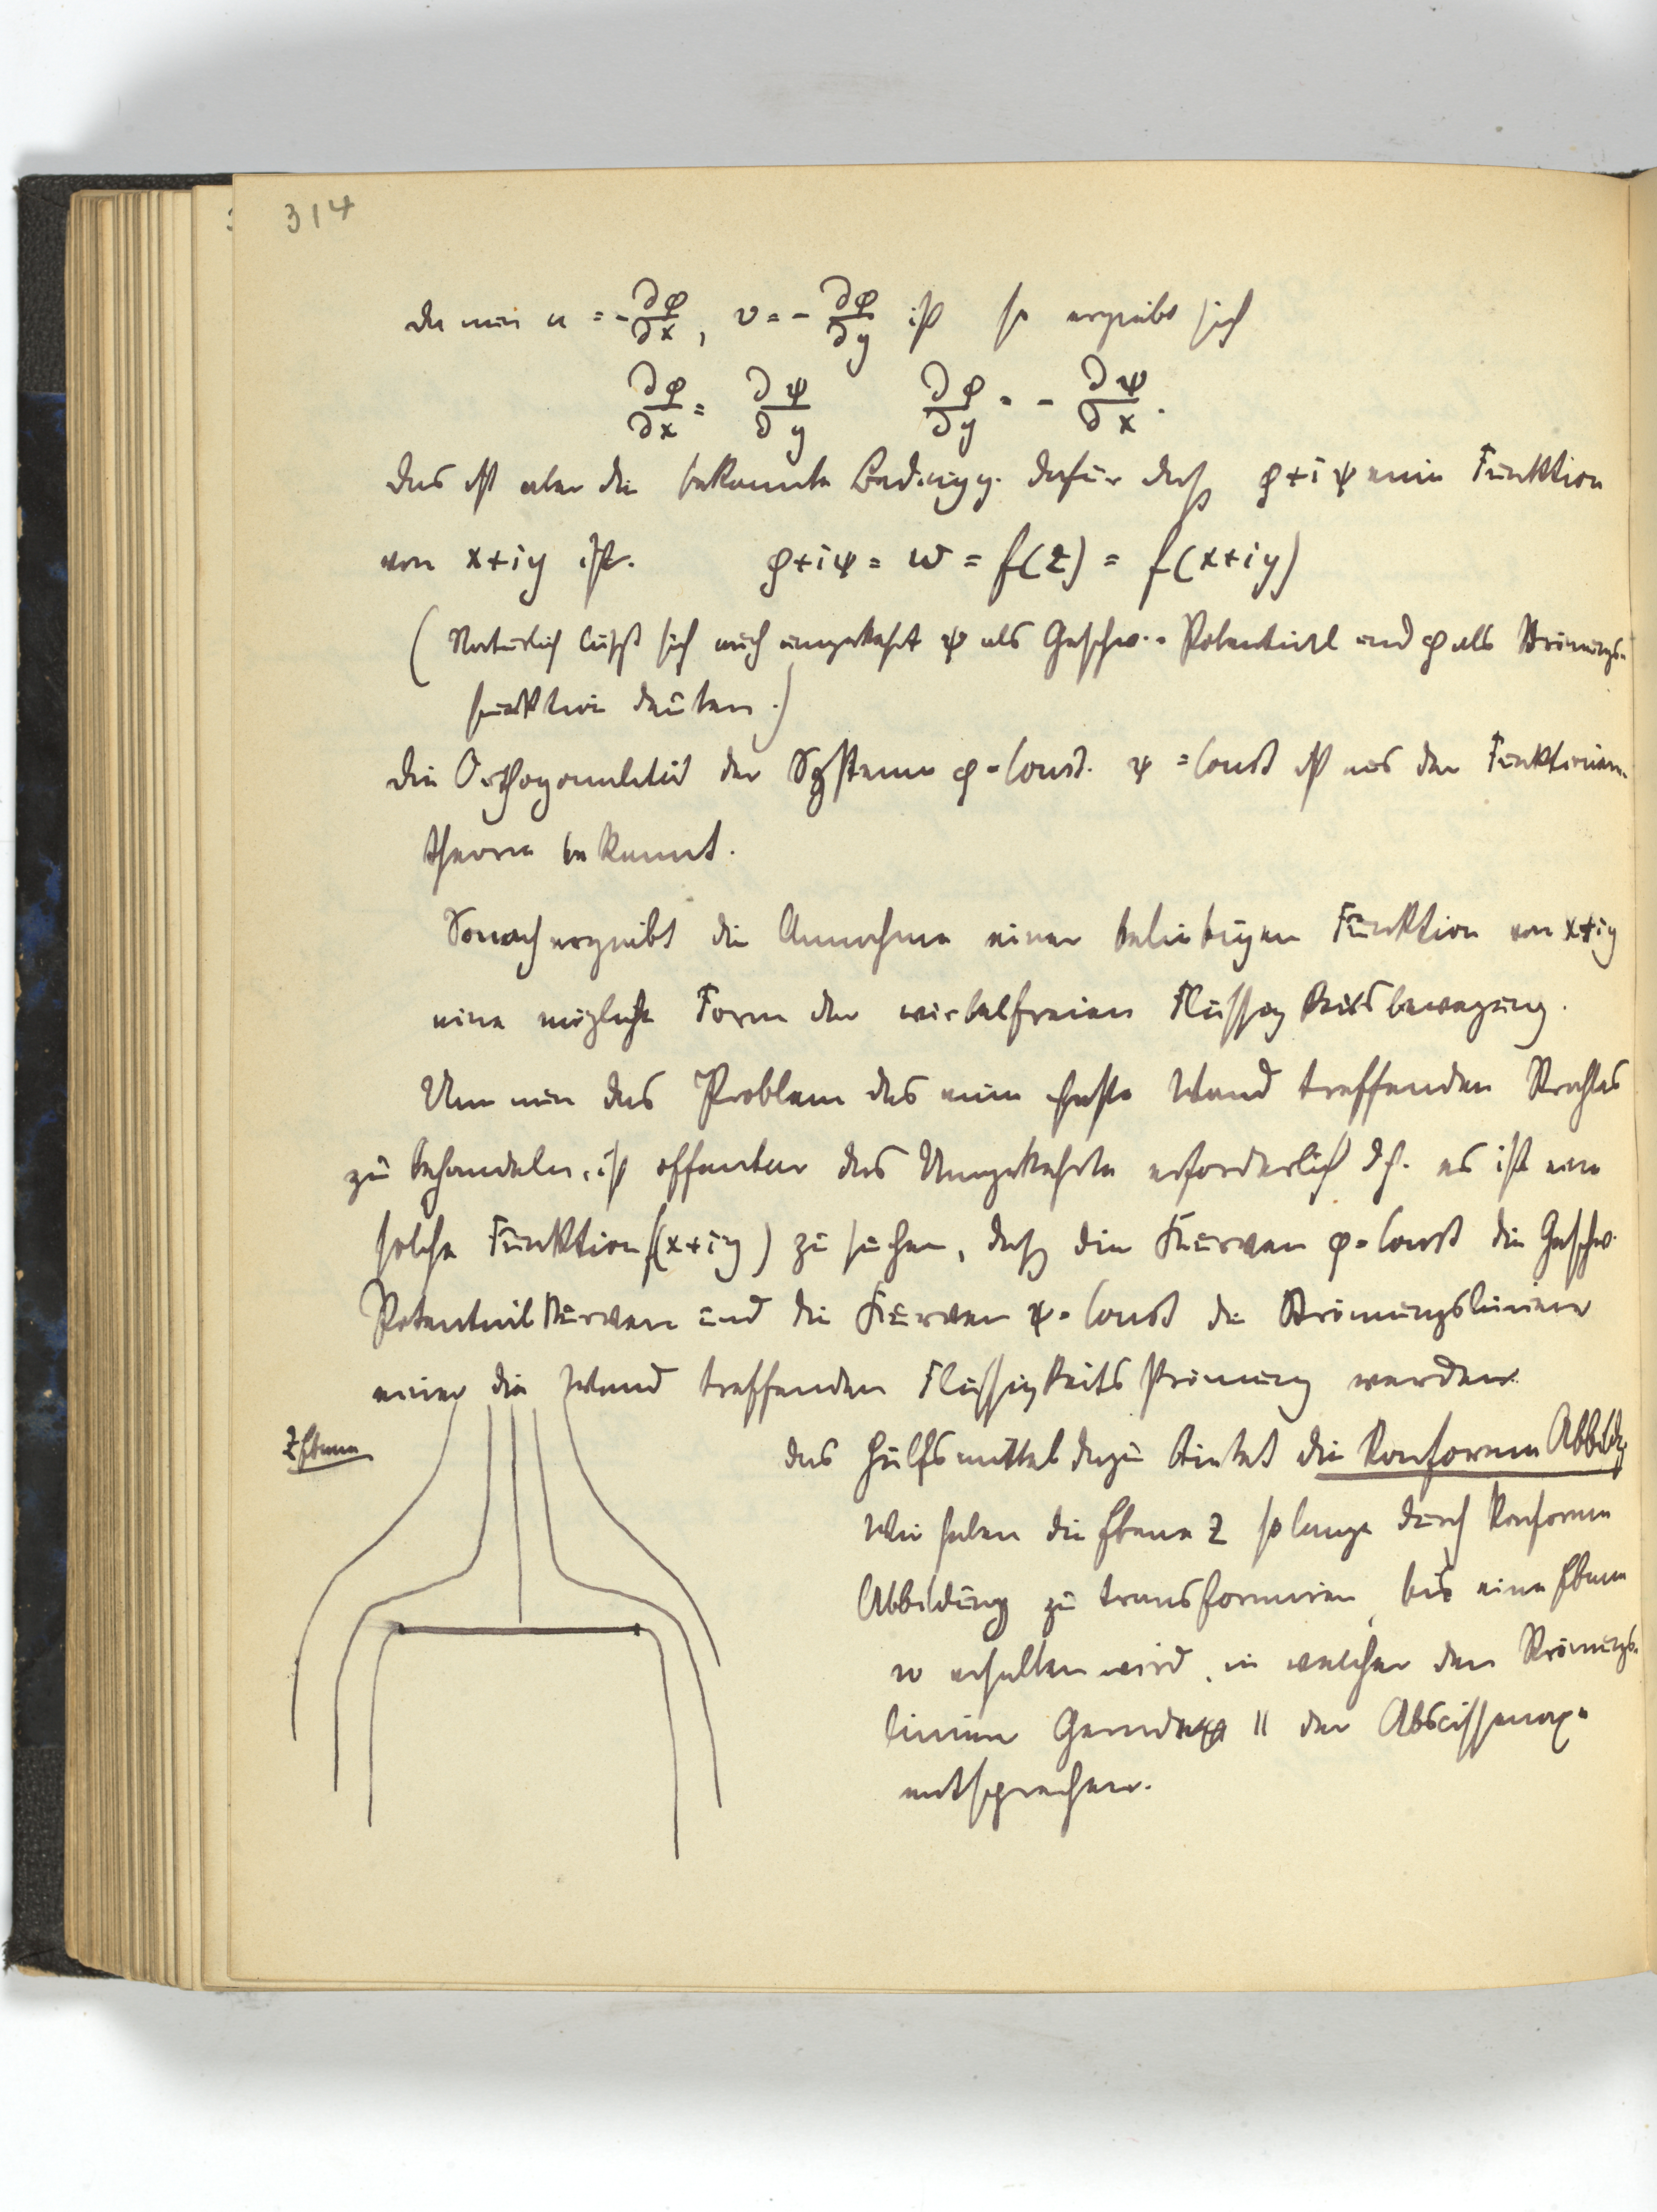 314
da nun u = -∂φ/∂x, v = -∂φ/∂y ist so ergiebt sich
∂φ/∂x = ∂ψ/∂y ∂φ/∂y = - ∂ψ/∂x.
das ist aber die bekannte Bedingg. dafür daß φ+iψ eine Funktion
von x+iy ist. φ+iψ = w = f(z) = f(x+iy)
( Natürlich läßt sich auch umgekehrt ψ als Geschw.-Potential und φ als Strömungs-
funktion deuten.)
die Orthogonalität der Systeme φ=Const. ψ=Const ist aus der Funktionen-
theorie bekannt.
Sonach ergiebt die Annahme einer beliebigen Funktion von x+iy
eine mögliche Form der wirbelfreien Flüssigkeitsbewegung.
Um nun das Problem des eine feste Wand treffenden Strahles
zu behandeln, ist offenbar das Umgekehrte erforderlich d.h. es ist eine
solche Funktion f(x+iy) zu suchen, daß die Kurven φ=Const die Geschw.
Potentialkurven und die Kurven ψ=Const die Strömungslinien
einer die Wand treffenden Flüssigkeitsströmung werden.
Z Ebene
das Hülfsmittel dazu bietet die konforme Abbildg
Wir haben die Ebene Z so lange durch konforme
Abbildung zu transformiren, bis eine Ebene
w erhalten wird, in welcher den Strömungs-
linien Gerade || der Abscissenaxe
entsprechen.